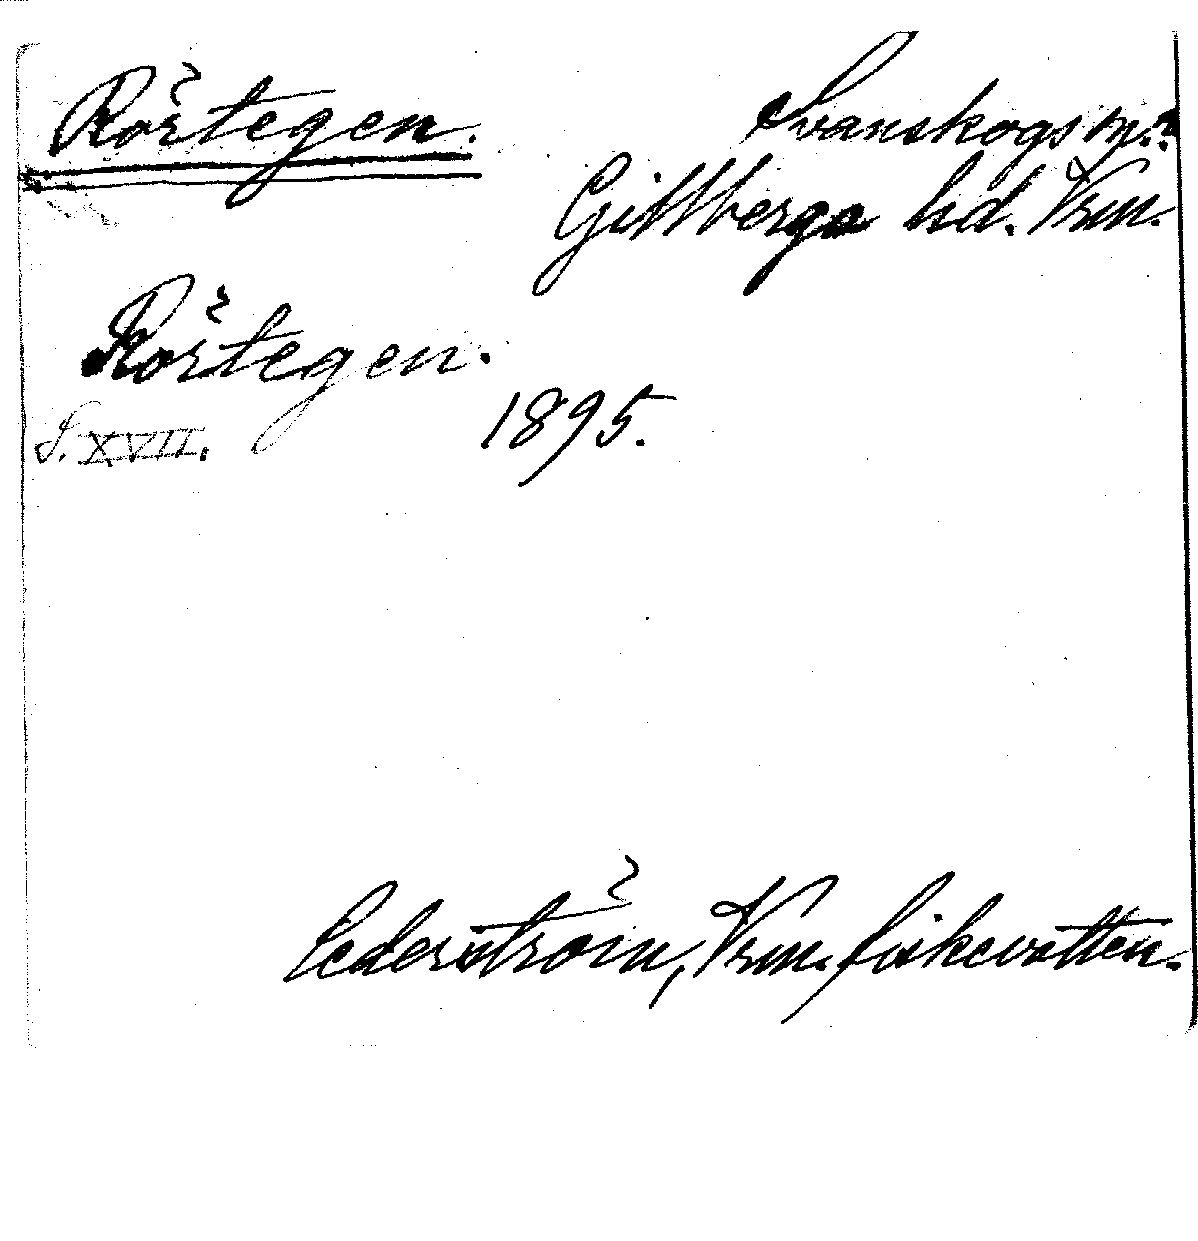 Rörtegen. Svanskogs sn.
Gillbergs hd. Vrm.
Rörtegen.
1895.
S. XVII.
Cederström, Vrm. fiskevatten.